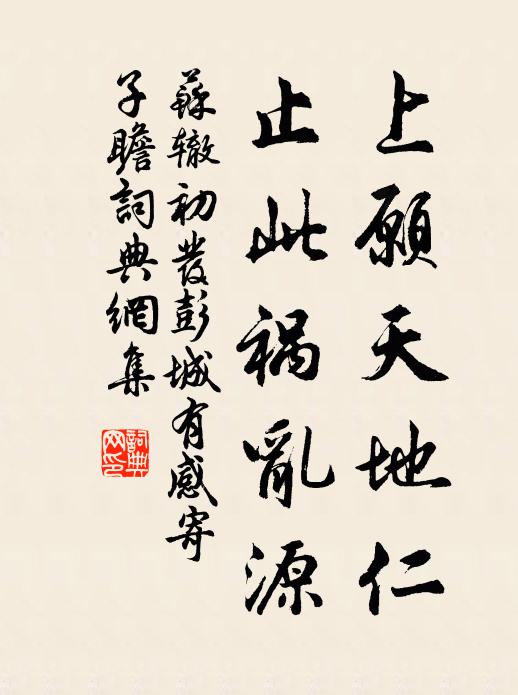 上願天地仁
止此祸亂源
蘇辙初發彭城有感寄
子瞻詞典網集
詞典
网印